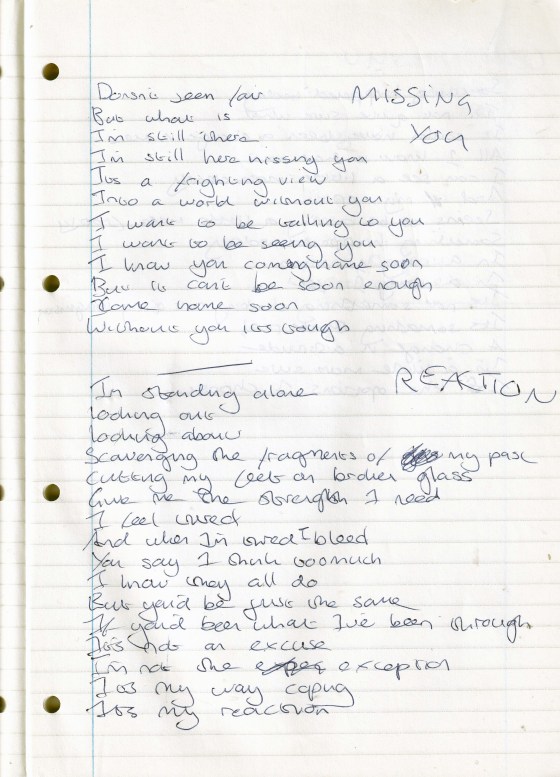 Doesnt seem fair
MISSING
But what is
YOU
I'm still there
I'm still here missing you
Its a frighting view
Into a world without you
I want to be talking to you
I want to be seeing you
I know you coming home soon
But it cant be soon enough
Come home soon
Without you its tough
REAKTION
I'm standing alone
looking out
looking about
Scavenging the fragments of my past
Cutting my feet on broken glass
Give me the strength I need
I feel tired
And when I'm tired I bleed
You say I think too much
I know they all do
But you'd be just the same
If you'd been what I've been through
It's not an excuse
I'm not the exception
Its my way coping
Its my reaction